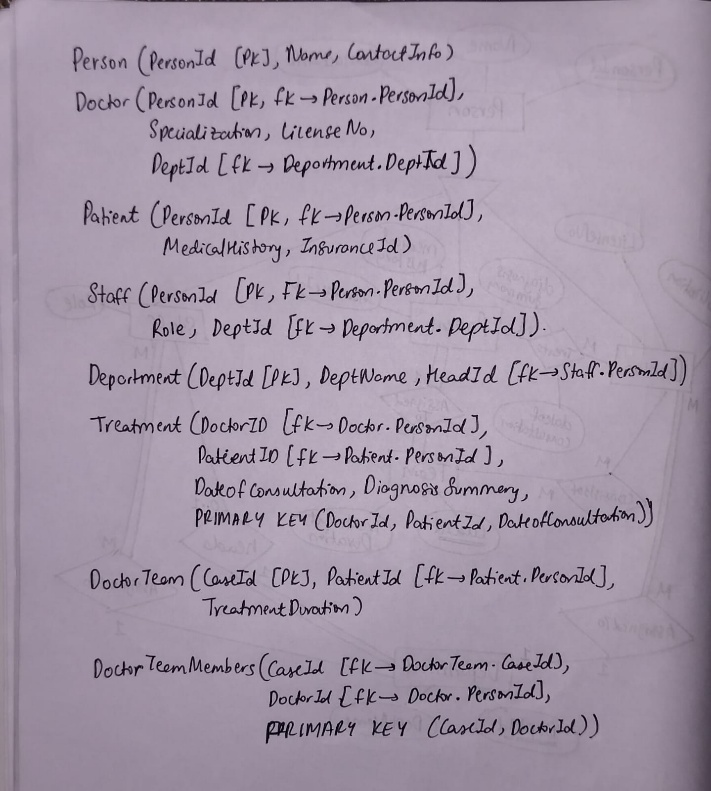 Person (PersonId [PK], Name, ContactInfo)
Doctor (PersonId [PK, fk → Person.PersonId],
Specialization, License No,
DeptId [fk → Department.DeptId])
Patient (PersonId [PK, fk → Person.PersonId],
MedicalHistory, InsuranceId)
Staff (PersonId [PK, FK → Person.PersonId],
Role, DeptId [fk → Department.DeptId]).
Department (DeptId [PK], DeptName, HeadId [fk → Staff.PersonId])
Treatment (DoctorID [fk → Doctor.PersonId],
PatientID [fk → Patient.PersonId],
DateofConsultation, Diagnosis Summery,
PRIMARY KEY (DoctorId, PatientId, DateofConsultation))
DoctorTeam (CaseId [PK], PatientId [fk → Patient.PersonId],
TreatmentDuration)
DoctorTeamMembers (CaseId [fk → DoctorTeam.CaseId),
DoctorId [fk → Doctor.PersonId],
PRIMARY KEY (CaseId, DoctorId))